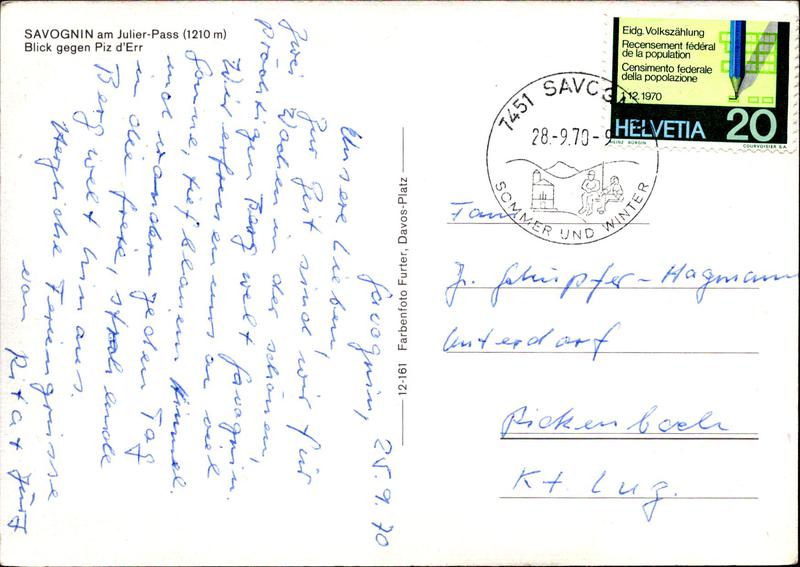 SAVOGNIN am Julier-Pass (1210 m)
Blick gegen Piz d'Err
Savognin, 25.9.70
Unsere Lieben,
Zur Zeit sind wir für
zwei Wochen in der schönen,
prächtigen Bergwelt Savognin.
Wir erfreuen uns an viel
Sonne, tief blauem Himmel
und wandern jeden Tag
in die freie, strahlende
Bergwelt hinaus.
Herzliche Feriengrüsse
von Rita + Josef
12-161 Farbenfoto Furter, Davos-Platz
Eidg. Volkszählung
Recensement fédéral
de la population
Censimento federale
della popolazione
1.12.1970
HELVETIA 20
HEINZ BÜRGIN COURVOISIER S.A.
7451 SAVOG
28.-9.70-9
SOMMER UND WINTER
Fam.
J. Schüpfer-Hagmann
Unterdorf
Rickenbach
Kt. Luz.